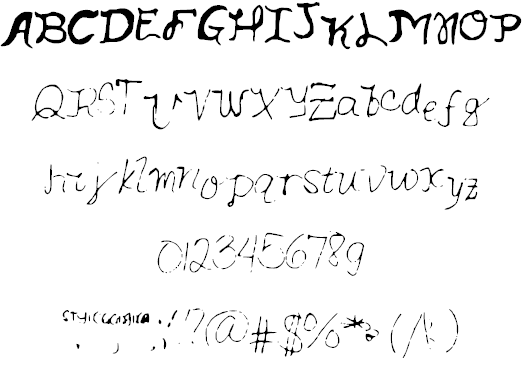 ABCDEFGHIJKLMNOP
QRSTUVWXYZabcdefg
hijklmnopqrstuvwxyz
0123456789
. , ; : ! ? @ # $ % * ( / \ )